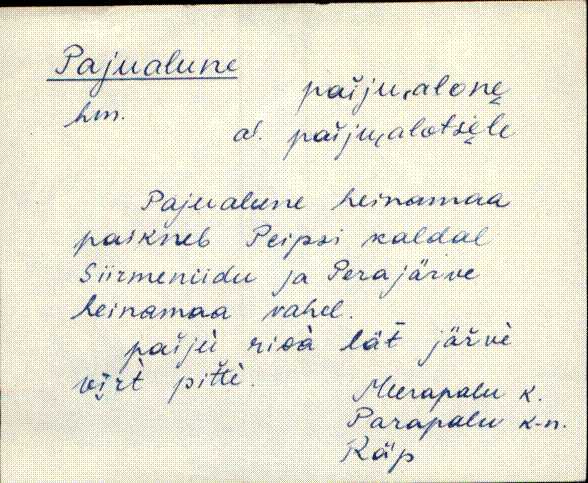 Pajualune
paiju,alone̮
hm.
al. paiju,alotse̮le
Pajualune heinamaa
paikneb Peipsi kaldal
Siirmeniidu ja Perajärve
heinamaa vahel.
lät järve
pitte.
Meerapalu k.
Parapalu k-n.
Räp